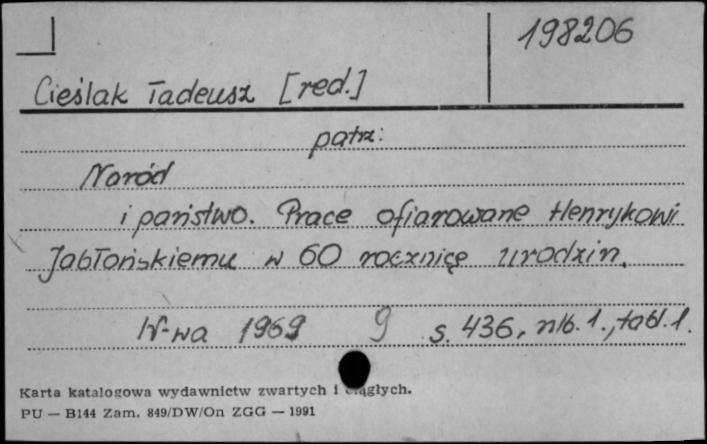 198206
Cieślak Tadeusz [red.]
patrz:
Naród
i państwo. Prace ofiarowane Henrykowi
Jabłońskiemu w 60 rocznicę urodzin.
W-wa 1969 9 s. 436, nlb. 1., tabl. 1.
Karta katalogowa wydawnictw zwartych i ciągłych.
PU — B144 Zam. 849/DW/On ZGG — 1991